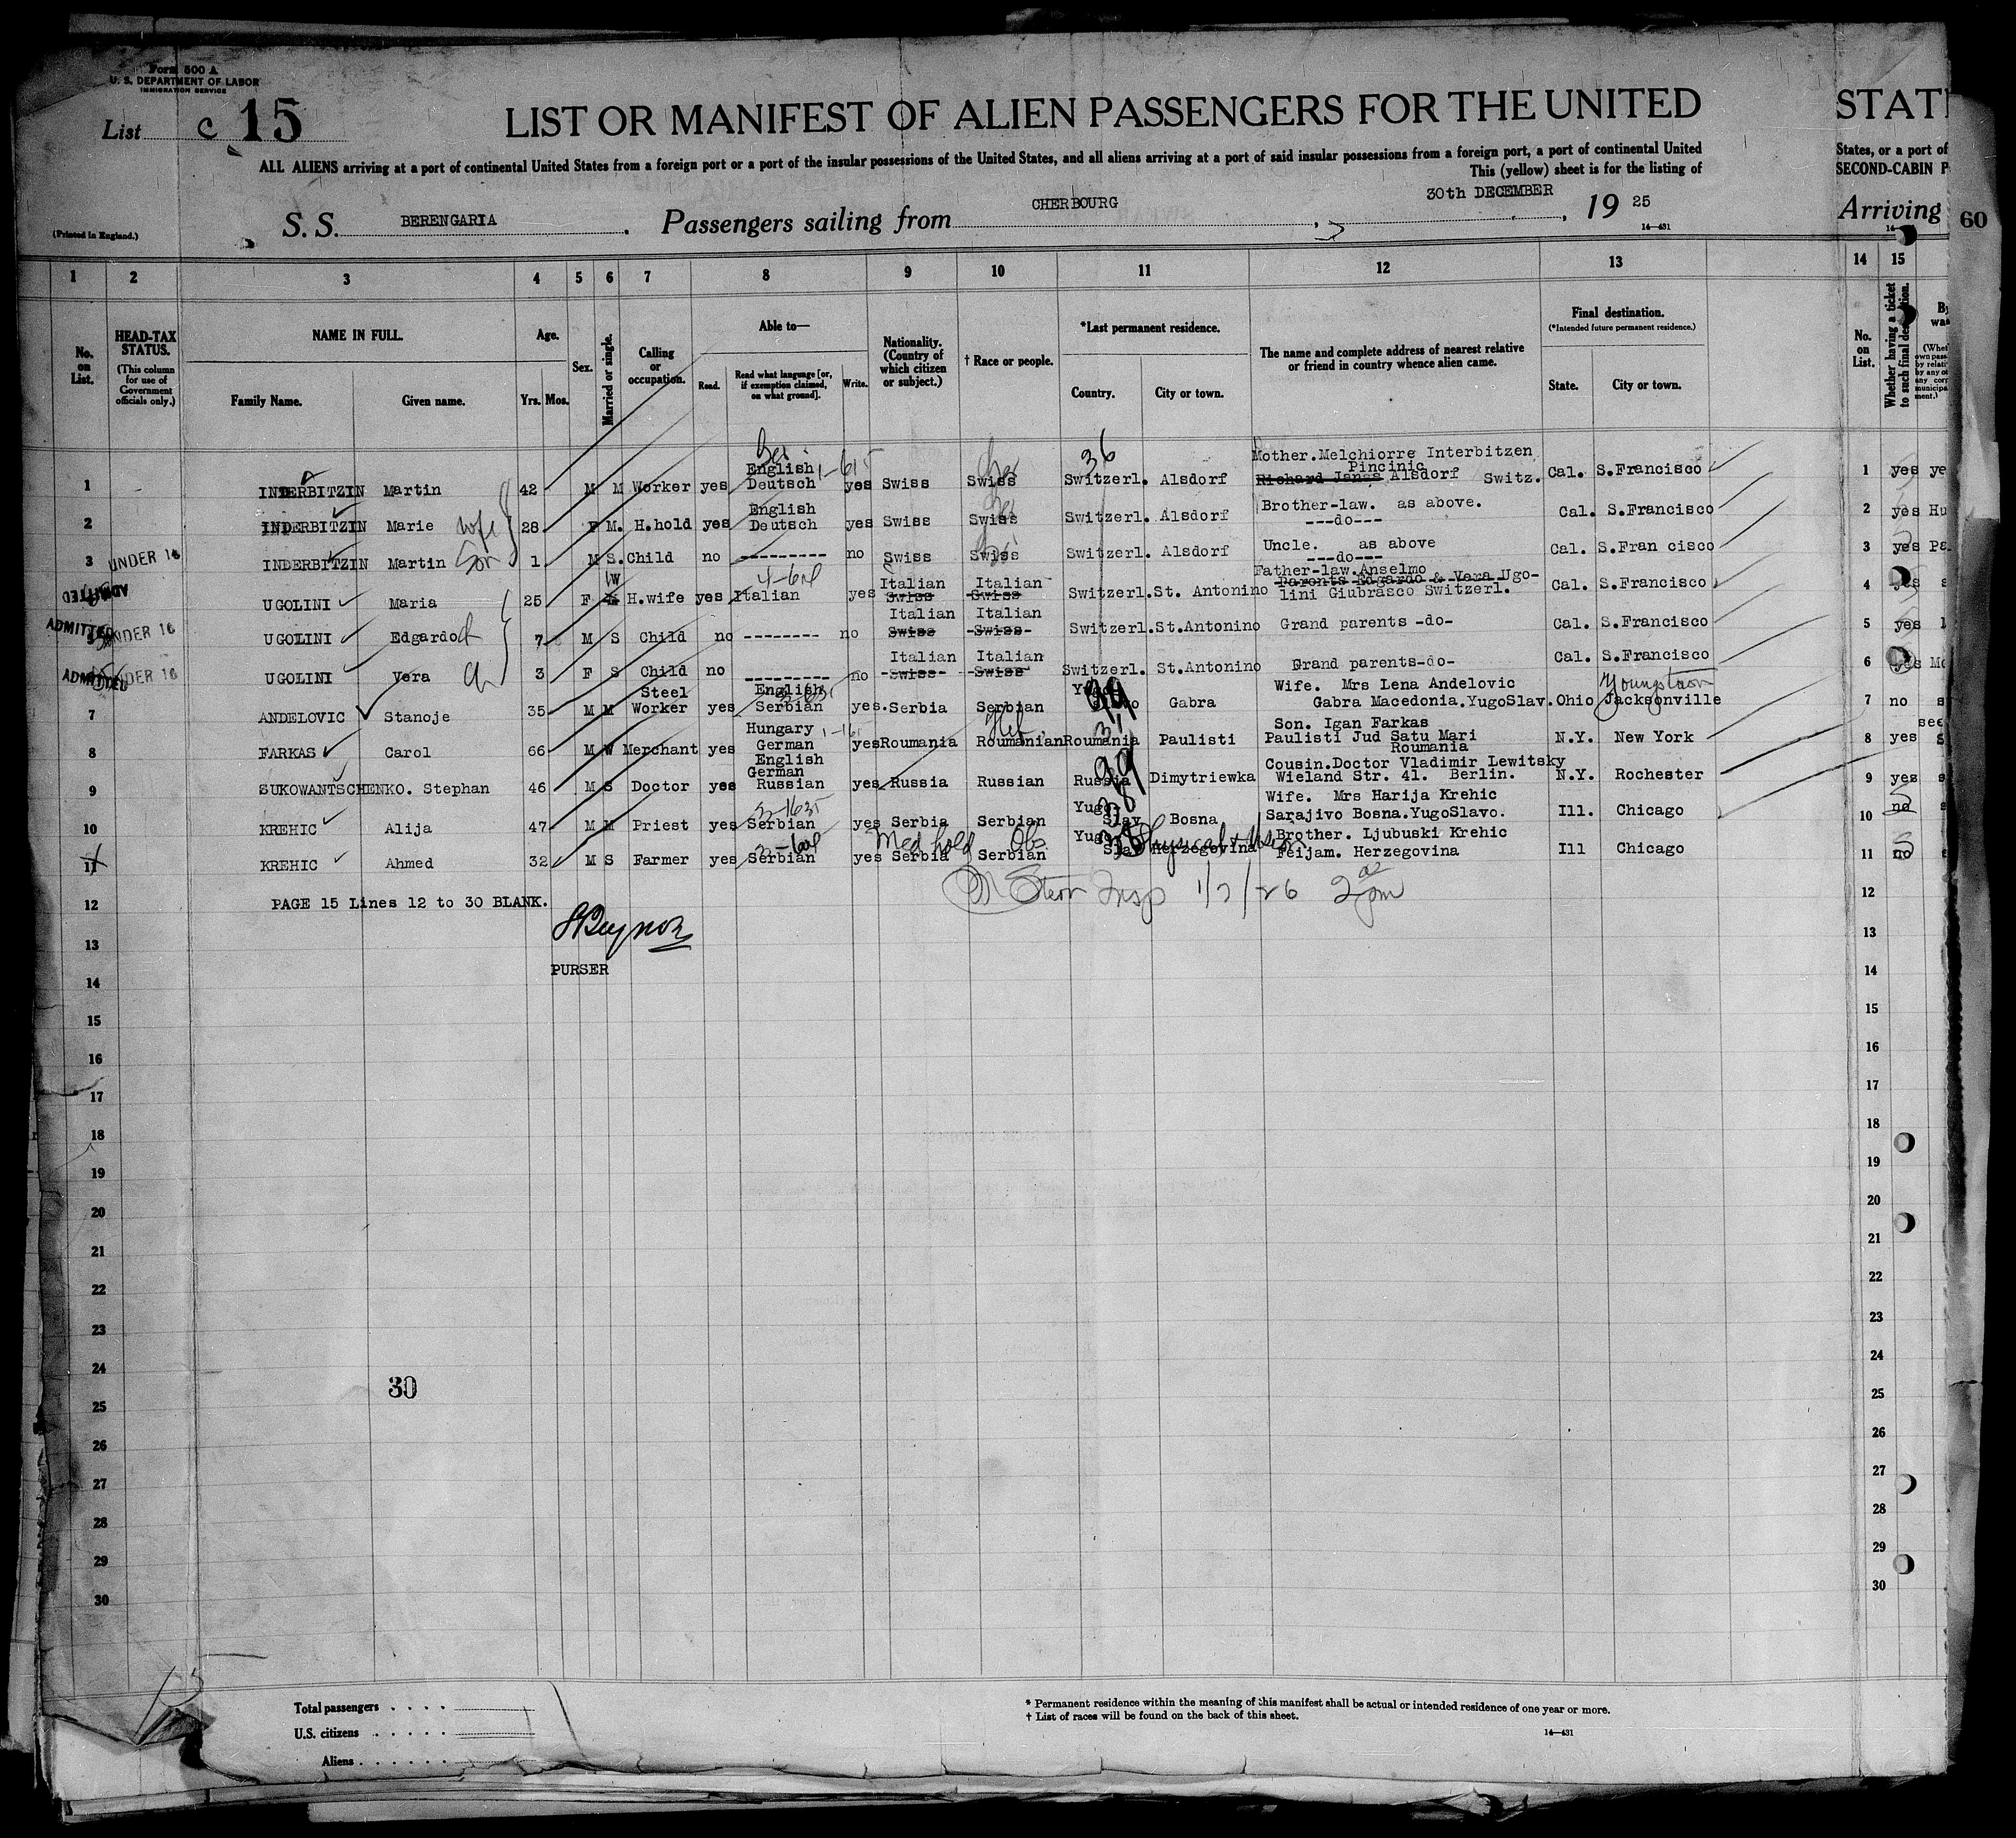 Form 500 A
U. S. DEPARTMENT OF LABOR
IMMIGRATION SERVICE
List C 15
LIST OR MANIFEST OF ALIEN PASSENGERS FOR THE UNITED STAT
ALL ALIENS arriving at a port of continental United States from a foreign port or a port of the insular possessions of the United States, and all aliens arriving at a port of said insular possessions from a foreign port, a port of continental United States, or a port of
This (yellow) sheet is for the listing of SECOND-CABIN P
(Printed in England.)
S. S. BERENGARIA. Passengers sailing from CHERBOURG, 30th DECEMBER, 19 25 Arriving 60
14—431
1 2 3 4 5 6 7 8 9 10 11 12 13 14 15
No. on List.
HEAD-TAX STATUS.
(This column for use of Government officials only.)
NAME IN FULL.
Family Name. Given name.
Age.
Yrs. Mos.
Sex.
Married or single.
Calling or occupation.
Able to—
Read. Read what language [or, if exemption claimed, on what ground]. Write.
Nationality. (Country of which citizen or subject.)
† Race or people.
*Last permanent residence.
Country. City or town.
The name and complete address of nearest relative or friend in country whence alien came.
Final destination.
(*Intended future permanent residence.)
State. City or town.
No. on List.
Whether having a ticket to such final destination.
1 INDERBITZIN Martin 42 M M Worker yes English Deutsch yes Swiss Swiss 36 Switzerl. Alsdorf Mother.Melchiorre Interbitzen Pincinic Richard Janss Alsdorf Switz. Cal. S.Francisco 1 yes ye
2 INDERBITZIN Marie wife 28 F M. H.hold yes English Deutsch yes Swiss Swiss Switzerl. Alsdorf Brother-law. as above. ---do--- Cal. S.Francisco 2 yes Hu
3 UNDER 16 INDERBITZIN Martin Son 1 M S. Child no ---------- no Swiss Swiss Switzerl. Alsdorf Uncle. as above ---do--- Cal. S.Fran cisco 3 yes Pa
ADMITTED UGOLINI Maria 25 F W H.wife yes Italian yes Italian Swiss Italian Swiss Switzerl. St. Antonino Father-law.Anselmo Parents Edgardo & Vera Ugolini Giubrasco Switzerl. Cal. S.Francisco 4 yes s
ADMITTED UNDER 16 UGOLINI Edgardo 7 M S Child no -------- no Italian Swiss Italian -Swiss- Switzerl. St.Antonino Grand parents -do- Cal. S.Francisco 5 yes
ADMITTED UNDER 16 UGOLINI Vera 3 F S Child no --------- no Italian -Swiss- Italian -Swiss- Switzerl. St.Antonino Grand parents-do- Cal. S.Francisco 6 yes Mo
7 ANDELOVIC Stanoje 35 M M Steel Worker yes English Serbian yes. Serbia Serbian 99 Gabra Wife. Mrs Lena Andelovic Gabra Macedonia.YugoSlav. Ohio Youngstown Jacksonville 7 no s
8 FARKAS Carol 66 M W Merchant yes Hungary German English yes Roumania Roumanian Roumania Paulisti Son. Igan Farkas Paulisti Jud Satu Mari Roumania N.Y. New York 8 yes see
9 SUKOWANTSCHENKO. Stephan 46 M S Doctor yes German Russian yes Russia Russian 99 Russia Dimytriewka Cousin.Doctor Vladimir Lewitsky Wieland Str. 41. Berlin. N.Y. Rochester 9 yes s
10 KREHIC Alija 47 M M Priest yes Serbian yes Serbia Serbian 38 Yugo- Slav Bosna Wife. Mrs Harija Krehic Sarajivo Bosna.YugoSlavo. Ill. Chicago 10 no s
11 KREHIC Ahmed 32 M S Farmer yes Serbian yes Serbia Serbian Med hold Obs 38 Yugo- Slav Herzegovina Physical Brother. Ljubuski Krehic Feijam. Herzegovina Ill Chicago 11 no
Insp 1/7/26 2 pm
12 PAGE 15 Lines 12 to 30 BLANK. 12
13 13
PURSER
14 14
15 15
16 16
17 17
18 18
19 19
20 20
21 21
22 22
23 23
24 24
30
25 25
26 26
27 27
28 28
29 29
30 30
15
Total passengers . . . .
U.S. citizens . . . . .
Aliens . . . . . .
* Permanent residence within the meaning of this manifest shall be actual or intended residence of one year or more.
† List of races will be found on the back of this sheet.
14—431